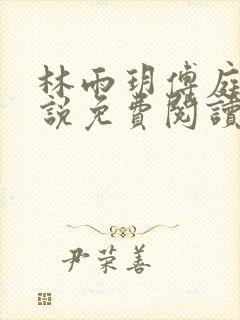 林雨玥傅庭
說免費閱讀
尹荣善